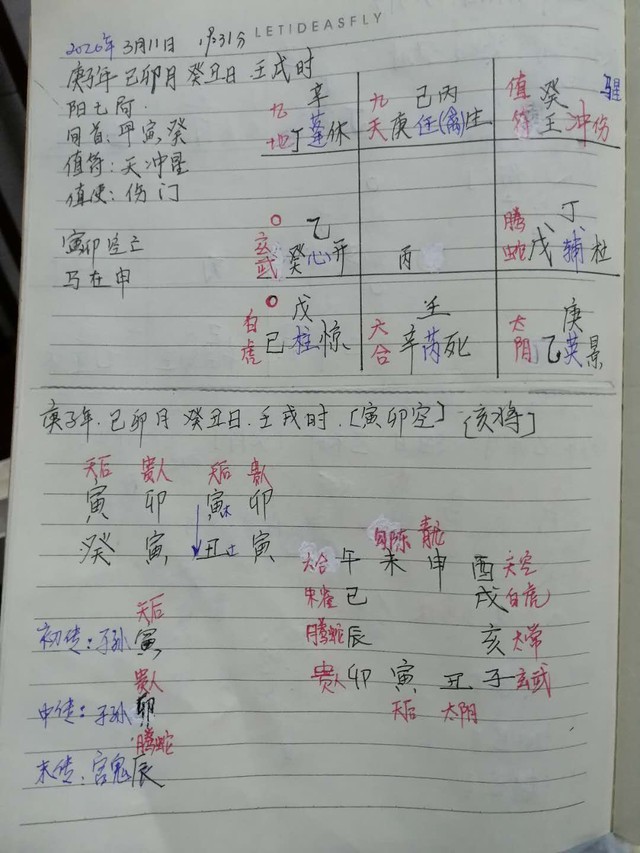 LETIDEASFLY
2020年3月11日 19:31分
庚子年 己卯月 癸丑日 壬戌时
阳七局.
旬首:甲寅癸
值符:天冲星
值使:伤门
寅卯空亡
马在申
九地 辛
丁蓬休
九天 己丙
庚任(禽)生
值符 癸 马星
壬冲伤
玄武 乙
癸心开
丙
腾蛇 丁
戊辅杜
白虎 戊
己柱惊
六合 壬
辛芮死
太阴 庚
乙英景
庚子年.己卯月 癸丑日.壬戌时.[寅卯空] [亥将]
天后 贵人 天后 贵人
寅 卯 寅木 卯
癸 寅 丑土 寅
勾陈 青龙
六合 午 未 申 酉 天空
朱雀 巳 戌 白虎
腾蛇 辰 亥 太常
贵人 卯 寅 丑 子 玄武
天后 太阴
天后
初传:子孙 寅
贵人
中传:子孙 卯
腾蛇
末传:官鬼 辰